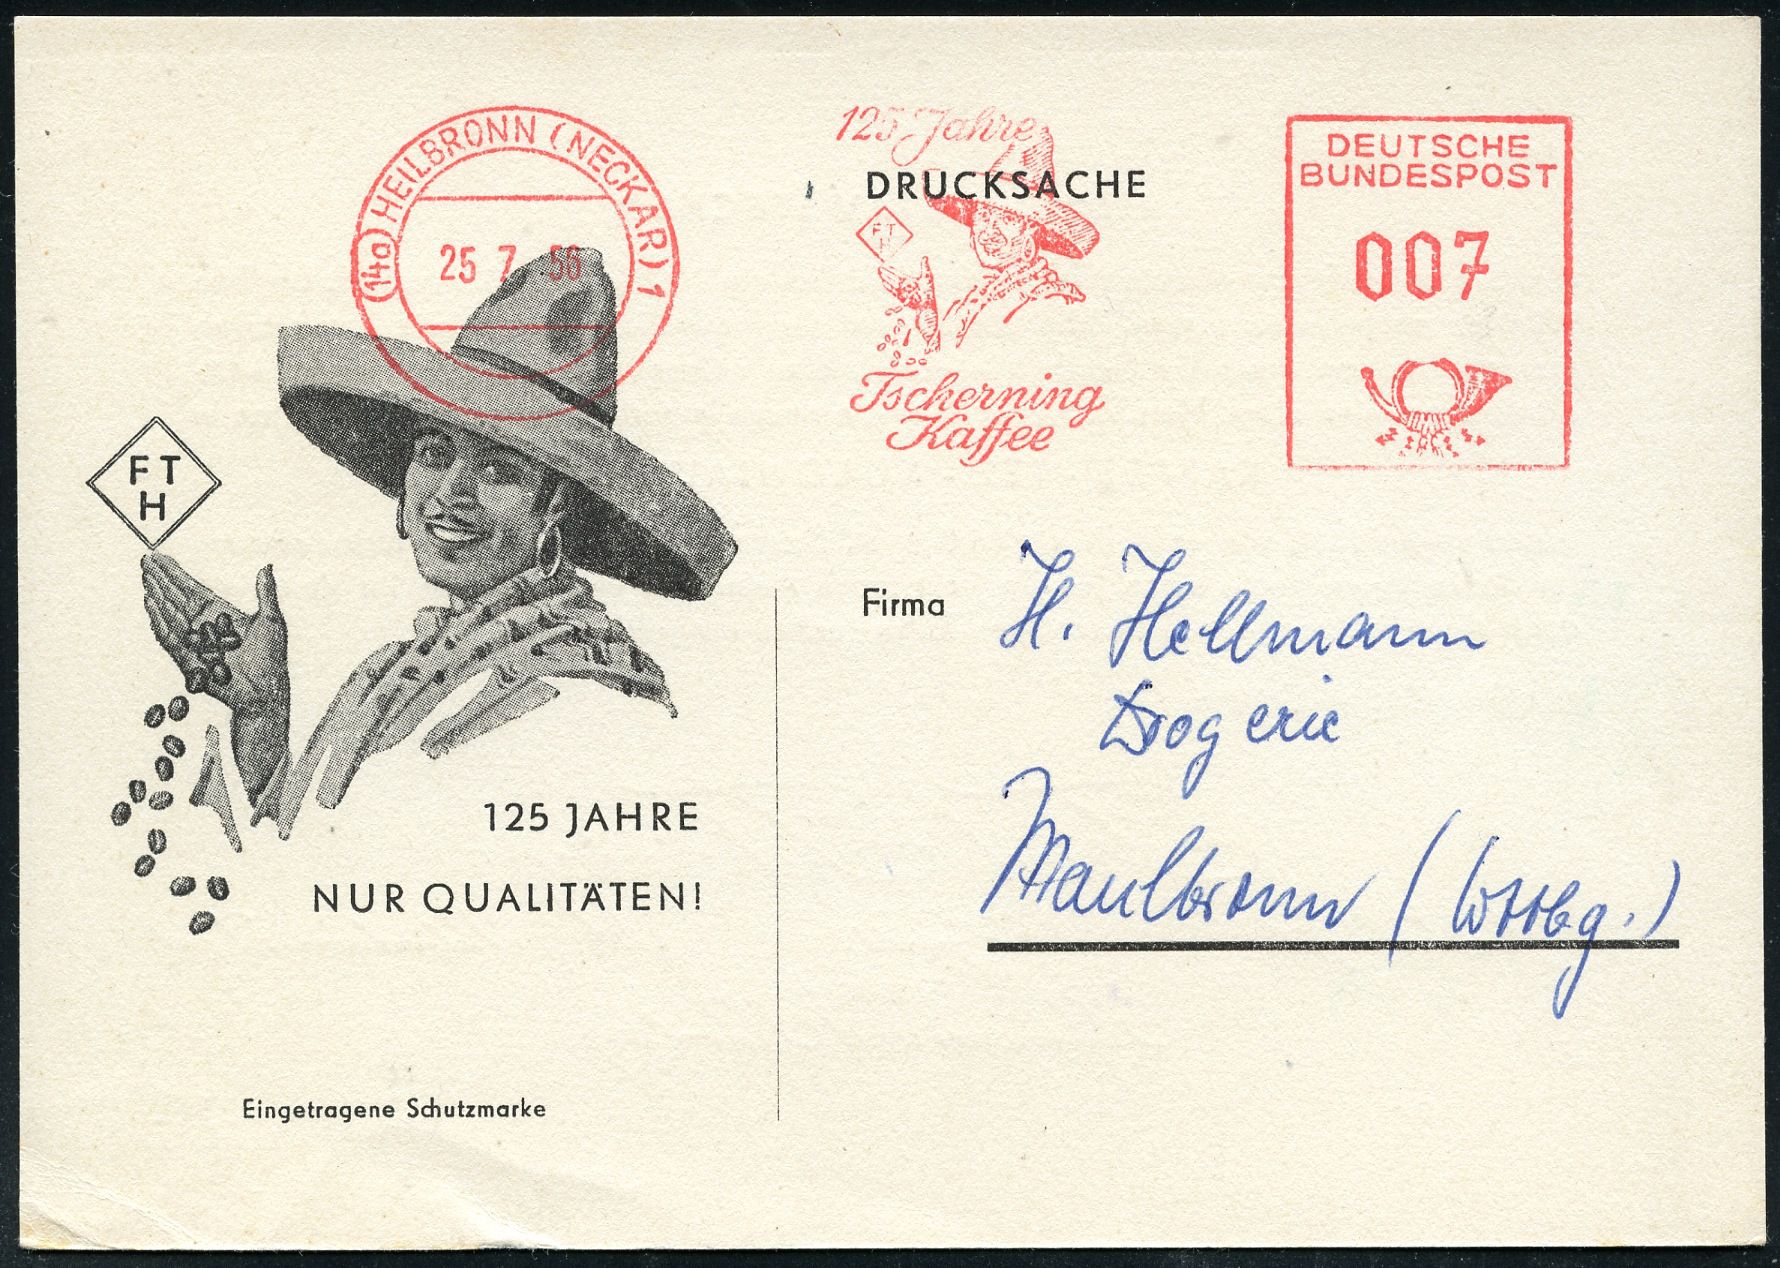 (14a) HEILBRONN (NECKAR) 1
25 7 56
125 Jahre
DRUCKSACHE
FT
H
Tscherning
Kaffee
DEUTSCHE
BUNDESPOST
007
FT
H
125 JAHRE
NUR QUALITÄTEN!
Eingetragene Schutzmarke
Firma H. Hellmann
Drogerie
Maulbronn (Wttbg.)